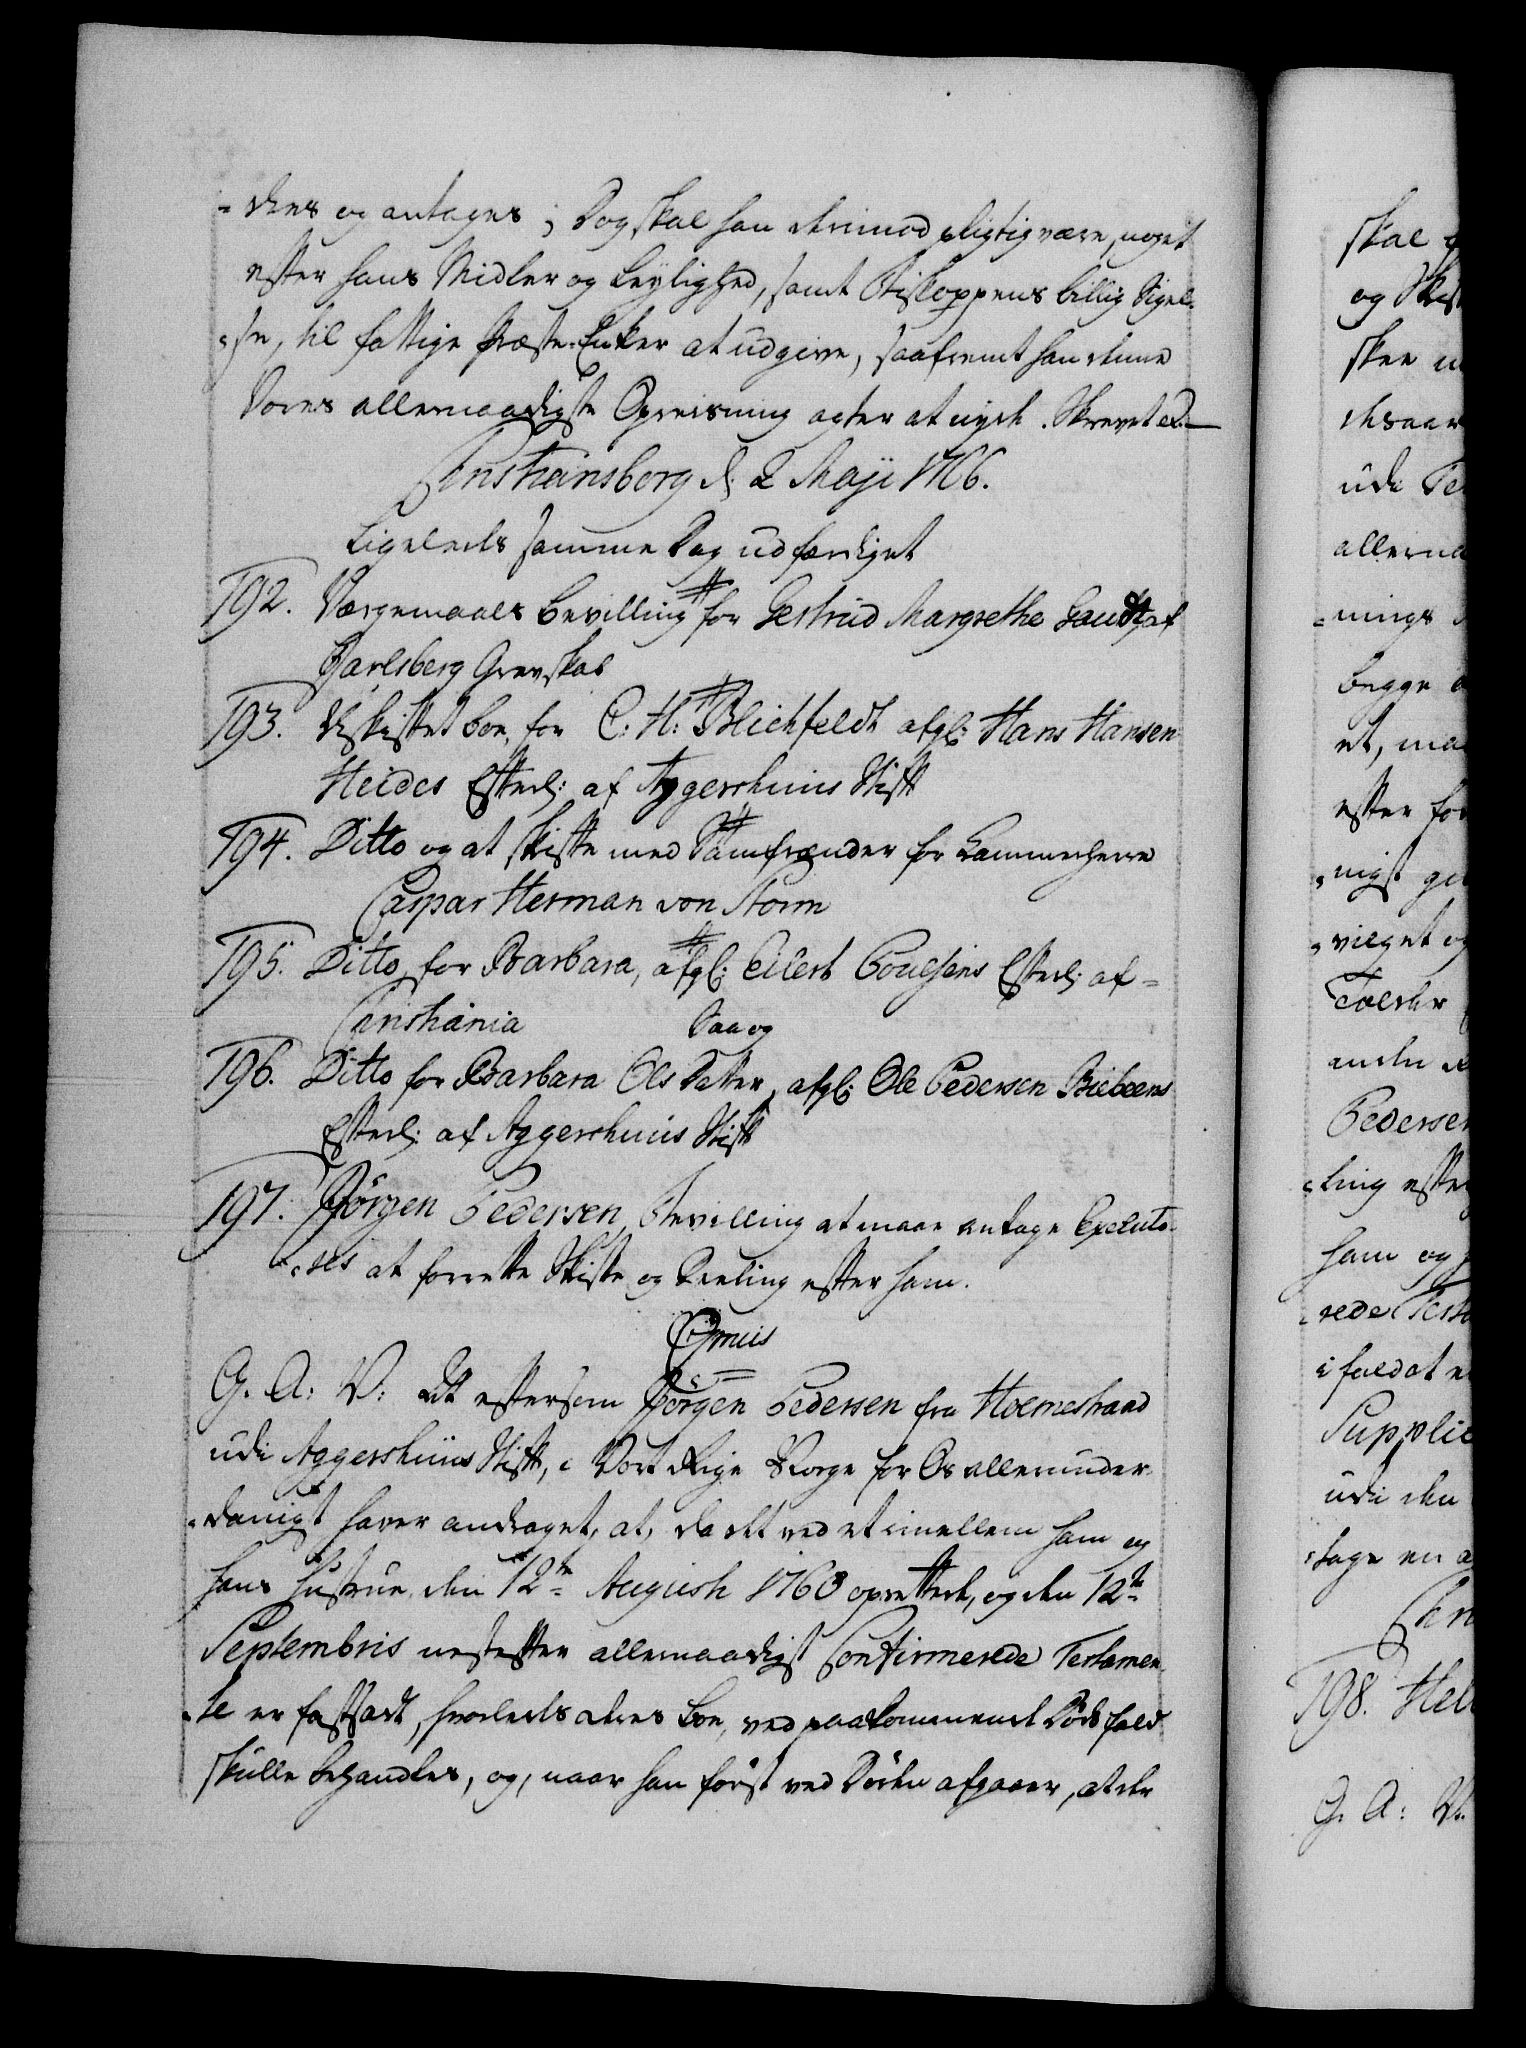 -deres og antages; Dog skal han derimod pligtig være, noget
efter hans Midler og Leylighed, samt Biskoppens billig Sigel-
-se, til fattige Præste-Enker at udgive, saafremt han denne
Vores allernaadigste Opreisning agter at nyde. Skrevet &.
Christiansborg d: 2 Maji 1766.
Ligeleds samme Dag udfærdiget
192. Værgemaals Bevilling for Gertrud Margrethe af
Jarlsberg Grevskab
193. Uskiftet Boe, for C: H: Blichfeldt afg: Hans Hansen
Heides Efterl: af Aggershuus Stift
194. Ditto og at skifte med Samfrænder for Kammerherre
Caspar Herman von Storm
195. Ditto, for Barbara, afg: Eilert Poulsens Efterl: af-
Christiania
Saa og
196. Ditto for Barbara Ols Datter, afg: Ole Pedersen Efterl: af Aggershuus Stift
197. Jörgen Pedersen, Bevilling at maae antage Executo-
-res at forrette Skifte og Deeling efter ham.
G. A: V: At eftersom Jörgen Pedersen fra Holmestrand
udi Aggershuus Stift, i Vort Rige Norge for Os allerunder-
-danigst haver andraget, at, da det ved et imellem ham og
hans Hustrue, den 12te Augusti 1763 oprettede, og den 12te
Septembris nestefter allernaadigst Confirmerede Testamen-
-te er fastsadt, hvorleds deres Boe, ved paakommende Dödsfald
skulle behandles, og, naar han först ved Döden afgaaer, at der
skal
og Skift
skee
udi
allerna
-nings
begge
et, ma
efter for
-nigst
-vilget og
Pedersen
-ling efter
ham og
-rede Testa
i fald at
Supplic
udi den
-tage en
Chri
198. Hel
G. A: V.